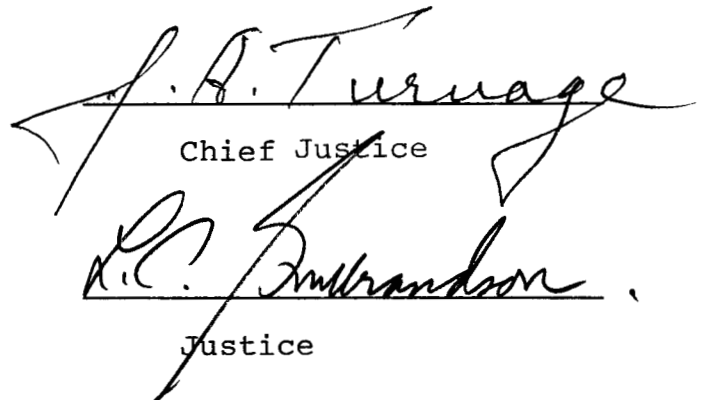 J. A. Turnage
Chief Justice
L.C. Gulbrandson
Justice